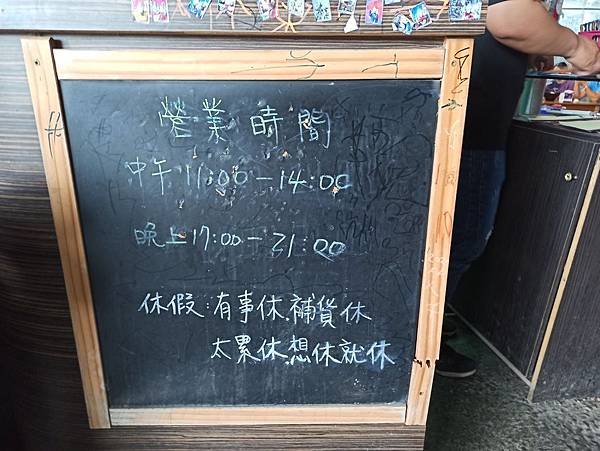 營業時間
中午 11:00-14:00
晚上 17:00-21:00
休假:有事休.補貨休
太累休.想休就休